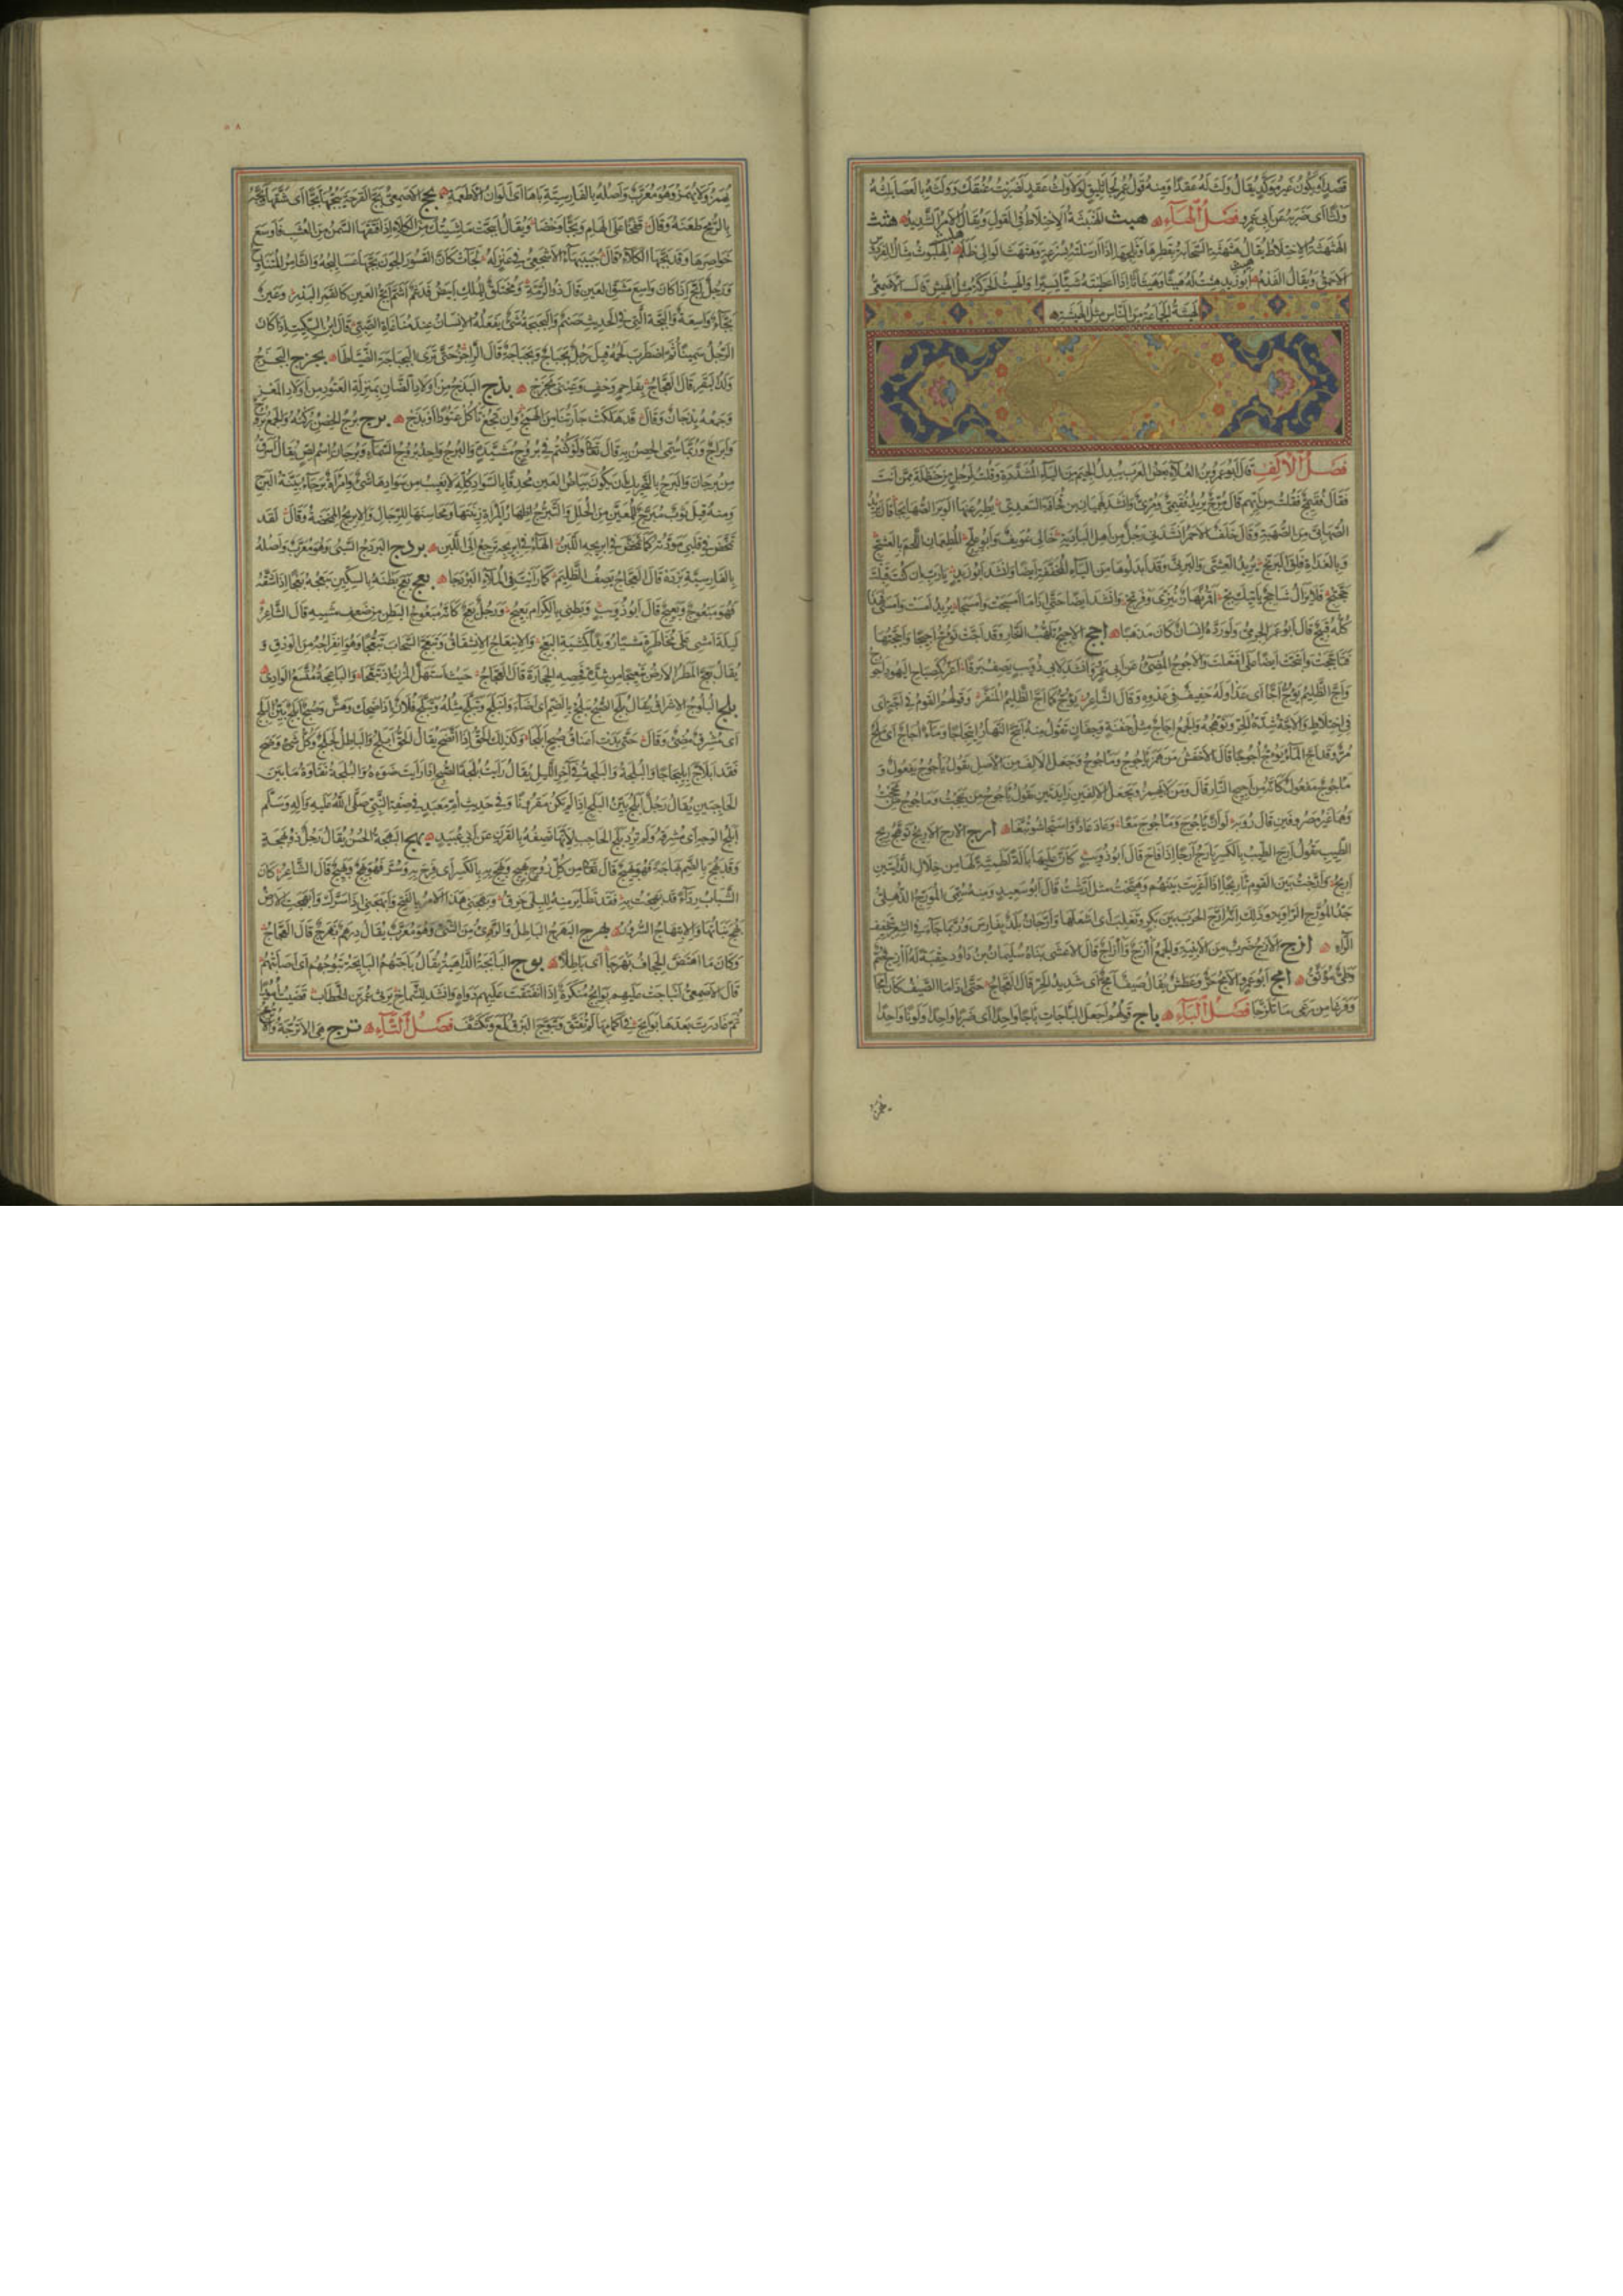 قصد او يكون غير مؤكد يقال ولث له عقدا ومنه قول عمر للجاثليق لولا ولث عقد لضربت عنقك وولثه بالعصا يلثه
ولثا اى ضربه عن ابى عمرو فصل الهاء هبث الهنبثة الاختلاط فى القول ويقال الامر الشديد هثث
الهثهثة الاختلاط يقال هثهثت السحابة بقطرها وثلجها اذا ارسلته بسرعة وهثهث الوالى ظلم الهلبوث مثال الفردوس
الاحمق ويقال الفدم ابو زيد هثت له هيثا وهيثانا اذا اعطيته شيئا يسيرا والهيث الحركة مثل الهيش قال الاصمعى
الهيثة الجماعة من الناس مثل الهيشة
فصل الالف قال ابو عمرو بن العلاء بعض العرب يبدل الجيم من الياء المشددة وقلت لرجل من حنظلة ممن انت
فقال فقيمج فقلت من ايهم قال مرج يريد فقيمى ومرى وانشد لهميان بن قحافة السعدى يطير عنها الوبر الصهابجا قال يريد
الصهابى من الصهبة وقال خلف الاحمر انشدنى رجل من اهل البادية خالى عويف وابو علج المطعمان اللحم بالعشج
وبالغداة فلق البرنج يريد العشى والبرنى وقد ابدلوها من الياء المخففة ايضا وانشد ابو زيد يا رب ان كنت قبلت
حجتج فلا يزال شاحج ياتيك بج اقمر نهات ينزى وفرتج وانشد ايضا حتى اذا ما امسجت وامسجا يريد امست وامسى فهذا
كله قبيح قال ابو عمر الجرمى ولو رده انسان كان مذهبا اجج الاجيج تلهب النار وقد اجت تؤج اجيجا واججتها
فتاججت وائتجت ايضا على افتعلت والاجوج المضىء عن ابى عمرو وانشد لابى ذؤيب يصف برقا اغر كمصباح اليهود اجوج
واج الظليم يؤج اجا اى عدا وله حفيف فى عدوه وقال الشاعر يؤج كما اج الظليم المنفر وقولهم القوم فى اجة اى
فى اختلاط والاجة شدة الحر وتوهجه والجمع اجاج مثل جفنة وجفان تقول منه ائتج النهار ائتجاجا وماء اجاج اى ملح
مر وقد اج الماء يؤج اجوجا قال الاخفش من همز ياجوج وماجوج وجعل الالف من الاصل يقول ياجوج يفعول و
ماجوج مفعول كانه من اجيج النار قال ومن لا يهمز ويجعل الالفين زايدتين يقول ياجوج من يججت وماجوج من مججت
وهما غير مصروفين قال رؤبة لو ان ياجوج وماجوج معا وعاد عاد واستجاشوا تبعا ارج الارج الاريج توهج ريح
الطيب تقول ارج الطيب بالكسر يارج ارجا اذا فاح قال ابو ذؤيب كان عليها بالة لطمية لها من خلال الدايتين
اريج وارجت بين القوم تاريجا اذا اغريت بينهم وهيجت مثل ارشت قال ابو سعيد ومنه سمى المؤرج الذهلى
جد المؤرج الراوية وذلك انه ارج الحرب بين بكر وتغلب اى اشعلها وارجان بلد بفارس وربما جاء فى الشعر بتخفيف
الراء ازج الازج ضرب من الابنية والجمع آزج وآزاج قال الاعشى بناه سليمان بن داود حقبة له ازج صم
وطى موثق امج ابو عمرو الامج حر وعطش يقال صيف امج اى شديد الحر قال العجاج حتى اذا ما الصيف كان امجا
وفرغا من رعى ما تلزجا فصل الباء باج قولهم اجعل الباجات باجا واحدا اى ضربا واحدا ولونا واحدا
يهمز
٥٨
يهمز ولا يهمز وهو معرب واصله بالفارسية باها اى الوان الاطعمة بجج الاصمعى بج القرحة يبجها بجا اى شقها وبجه
بالرمح طعنه وقال قفخا على الهام وبجا وخضا ويقال انبجت ماشيتك من الكلا اذا فتقها السمن من العشب فاوسع
خواصرها وقد بجها الكلا قال جبيهاء الاشجعى فى عنز له لجاءت كان القسور الجون بجها عساليجه والثامر المتناوح
ورجل ابج اذا كان واسع مشق العين قال ذو الرمة ومختلق للملك ابيض فدغم اشم ابج العين كالقمر البدر وعين
بجاء واسعة والبجة التى فى الحديث صنم والبجبجة شىء يفعله الانسان عند مناغاة الصبى قال ابن السكيت اذا كان
الرجل سمينا ثم اضطرب لحمه قيل رجل بجباج وبجباجة قال الراجز حتى ترى البجباجة الضياطا بحزج البحزج
ولد البقر قال العجاج بفاحم وحف وعينى بحزج بذج البذج من اولاد الضان بمنزلة العتود من اولاد المعز
وجمعه بذجان وقال قد هلكت جارتنا من الهمج وان تجع تاكل عتودا او بذج برج برج الحصن ركنه والجمع بروج
وابراج وربما سمى الحصن به قال تعالى ولو كنتم فى بروج مشيدة والبرج واحد بروج السماء وبرجان اسم لص يقال اسرق
من برجان والبرج بالتحريك ان يكون بياض العين محدقا بالسواد كله لا يغيب من سوادها شىء وامراة برجاء بينة البرج
ومنه قيل ثوب مبرج للمعين من الحلل والتبرج اظهار المراة زينتها ومحاسنها للرجال والابريج الممخضة وقال لقد
تمخض فى قلبى مودتها كما تمخض فى ابريجه اللبن الهاء فى ابريجه ترجع الى اللبن بردج البردج السبى وهو معرب واصله
بالفارسية برده قال العجاج يصف الظليم كما رايت فى الملاء البردجا بعج بعج بطنه بالسكين يبعجه بعجا اذا شقه
فهو مبعوج وبعيج قال ابو ذؤيب وبطنى بالكرام بعيج ورجل بعج كانه مبعوج البطن من ضعف مشيه قال الشاعر
ليلة امشى على مخاطرة مشيا رويدا كمشية البعج والانبعاج الانشقاق وتبعج السحاب تبعجا وهو انفراجه من الودق و
يقال بعج المطر الارض تبعيجا من شدة فحصه الحجارة قال العجاج حيث استهل المزن او تبعجا والباعجة متسع الوادى
بلج البلوج الاشراق يقال بلج الصبح يبلج بالضم اى اضاء وانبلج وتبلج مثله وتبلج فلان اذا ضحك وهش وصبح ابلج بين البلج
اى مشرق مضىء وقال حتى بدت اعناق صبح ابلجا وكذلك الحق اذا اتضح يقال الحق ابلج والباطل لجلج وكل شىء وضح
فقد ابلاج ابليجاجا والبلجة والبلجة فى آخر الليل يقال رايت بلجة الصبح اذا رايت ضوءه والبلجة نقاوة ما بين
الحاجبين يقال رجل ابلج بين البلج اذا لم يكن مقرونا وفى حديث ام معبد فى صفة النبى صلى الله عليه وآله وسلم
ابلج الوجه اى مشرقه ولم ترد بلج الحاجب لانها تصفه بالقرن عن ابى عبيد بهج البهجة الحسن يقال رجل ذو بهجة
وقد بهج بالضم بهاجة فهو بهيج قال تعالى من كل زوج بهيج وبهج به بالكسر اى فرح به وسر فهو بهج وبهيج قال الشاعر كان
الشباب رداء قد بهجت به فقد تطاير منه للبلى خرق وبهجنى هذا الامر بالفتح وابهجنى اذا سرك وابهجت الارض
بهج نباتها والابتهاج السرور بهرج البهرج الباطل والردى من الشىء وهو معرب يقال درهم بهرج قال العجاج
وكان ما اهتض الجحاف بهرجا اى باطلا بوج البائجة الداهية يقال باجتهم البائجة تبوجهم اى اصابتهم
قال الاصمعى انباجت عليهم بوائج منكرة اذا انفتقت عليهم دواه وانشد للشماخ يرثى عمر بن الخطاب قضيت امورا
ثم غادرت بعدها بوائج فى اكمامها لم تفتق وتبوج البرق لمع وتكشف فصل التاء ترج هى الاترجة والاترج